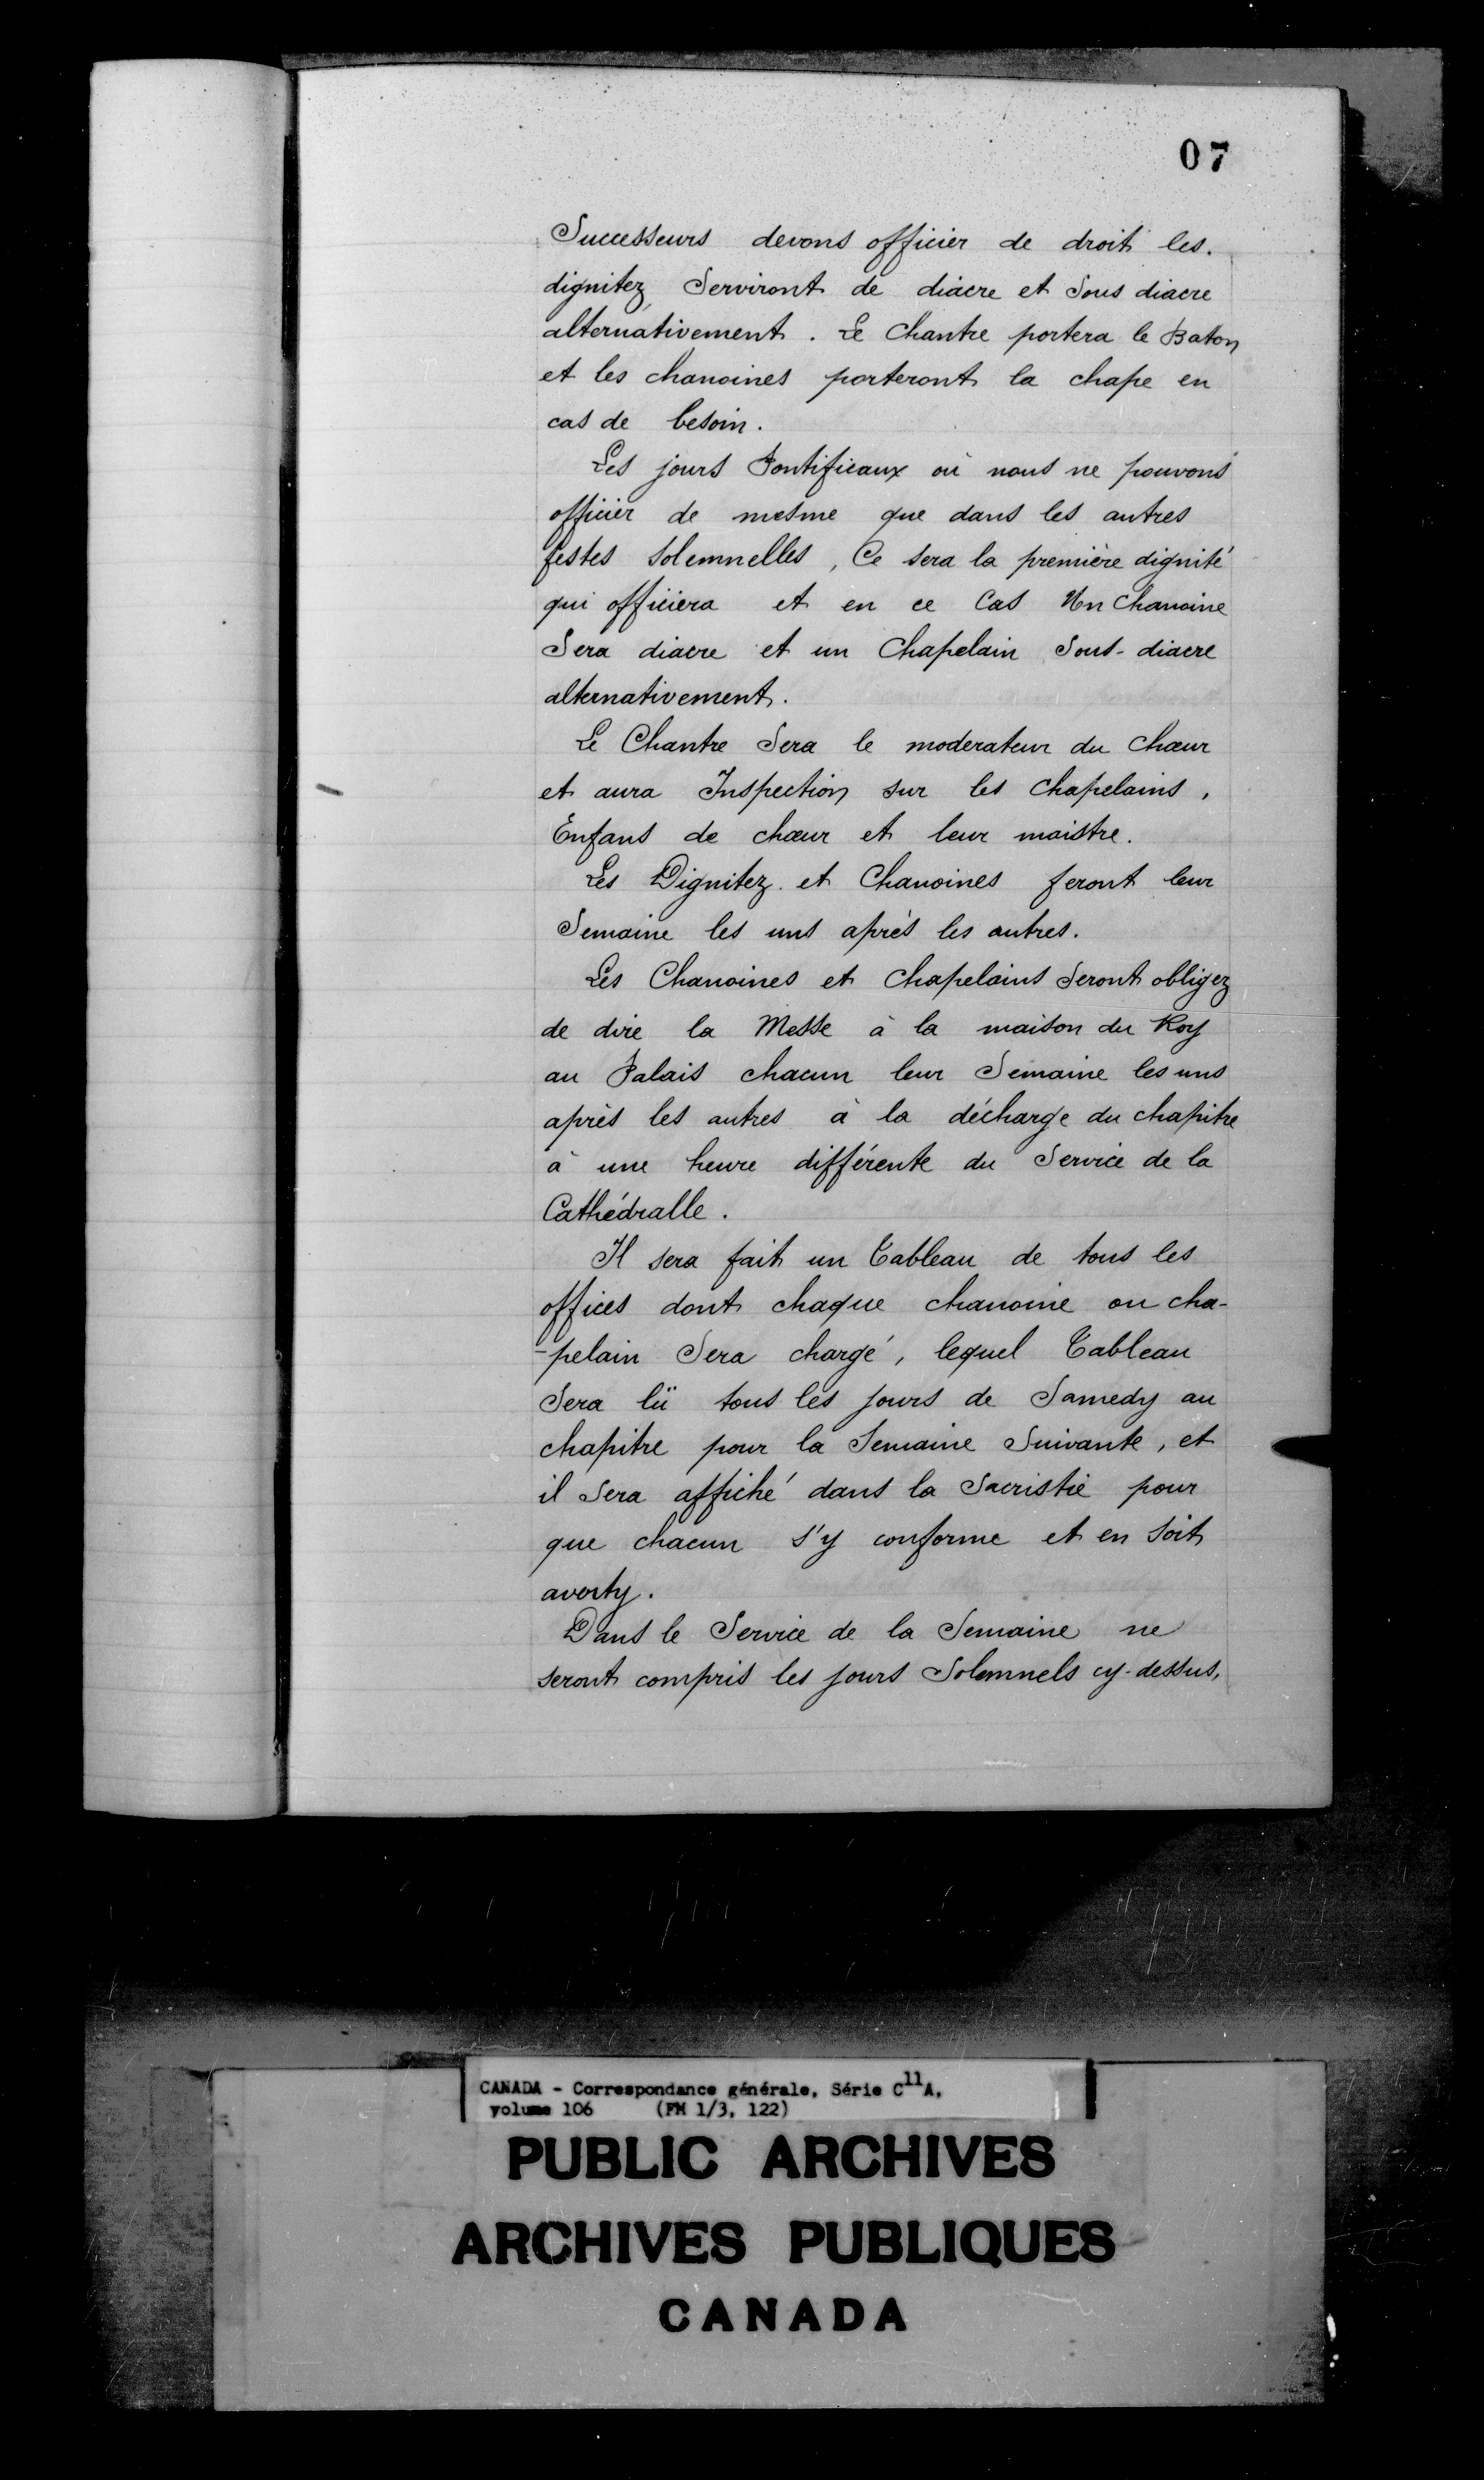 07
Successeurs devons officier de droit les.
dignitez Serviront de diacre et Sous diacre
alternativement. Le Chantre portera le Baton
et les chanoines porteront la chape en
cas de besoin.
Les jours Pontificaux où nous ne pouvons
officier de mesme que dans les autres
festes Solemnelles, Ce sera la première dignité
qui officiera et en ce Cas Un Chanoine
Sera diacre et un Chapelain Sous-diacre
alternativement.
Le Chantre Sera le moderateur du Chœur
et aura Inspection sur les Chapelains,
Enfans de chœur et leur maistre.
Les Dignitez et Chanoines feront leur
Semaine les uns après les autres.
Les Chanoines et Chapelains Seront obligez
de dire la Messe à la maison du Roy
au Palais chacun leur Semaine les uns
après les autres à la décharge du chapitre
à une heure différente du Service de la
Cathédralle.
Il sera fait un Tableau de tous les
offices dont chaque chanoine ou cha-
-pelain Sera chargé, lequel Tableau
Sera lü tous les jours de Samedy au
chapitre pour la Semaine Suivante, et
il Sera affiché dans la Sacristie pour
que chacun s'y conforme et en soit
averty.
Dans le Service de la Semaine ne
seront compris les jours Solemnels cy-dessus,
CANADA - Correspondance générale, Série C11A,
volume 106 (FM 1/3, 122)
PUBLIC ARCHIVES
ARCHIVES PUBLIQUES
CANADA